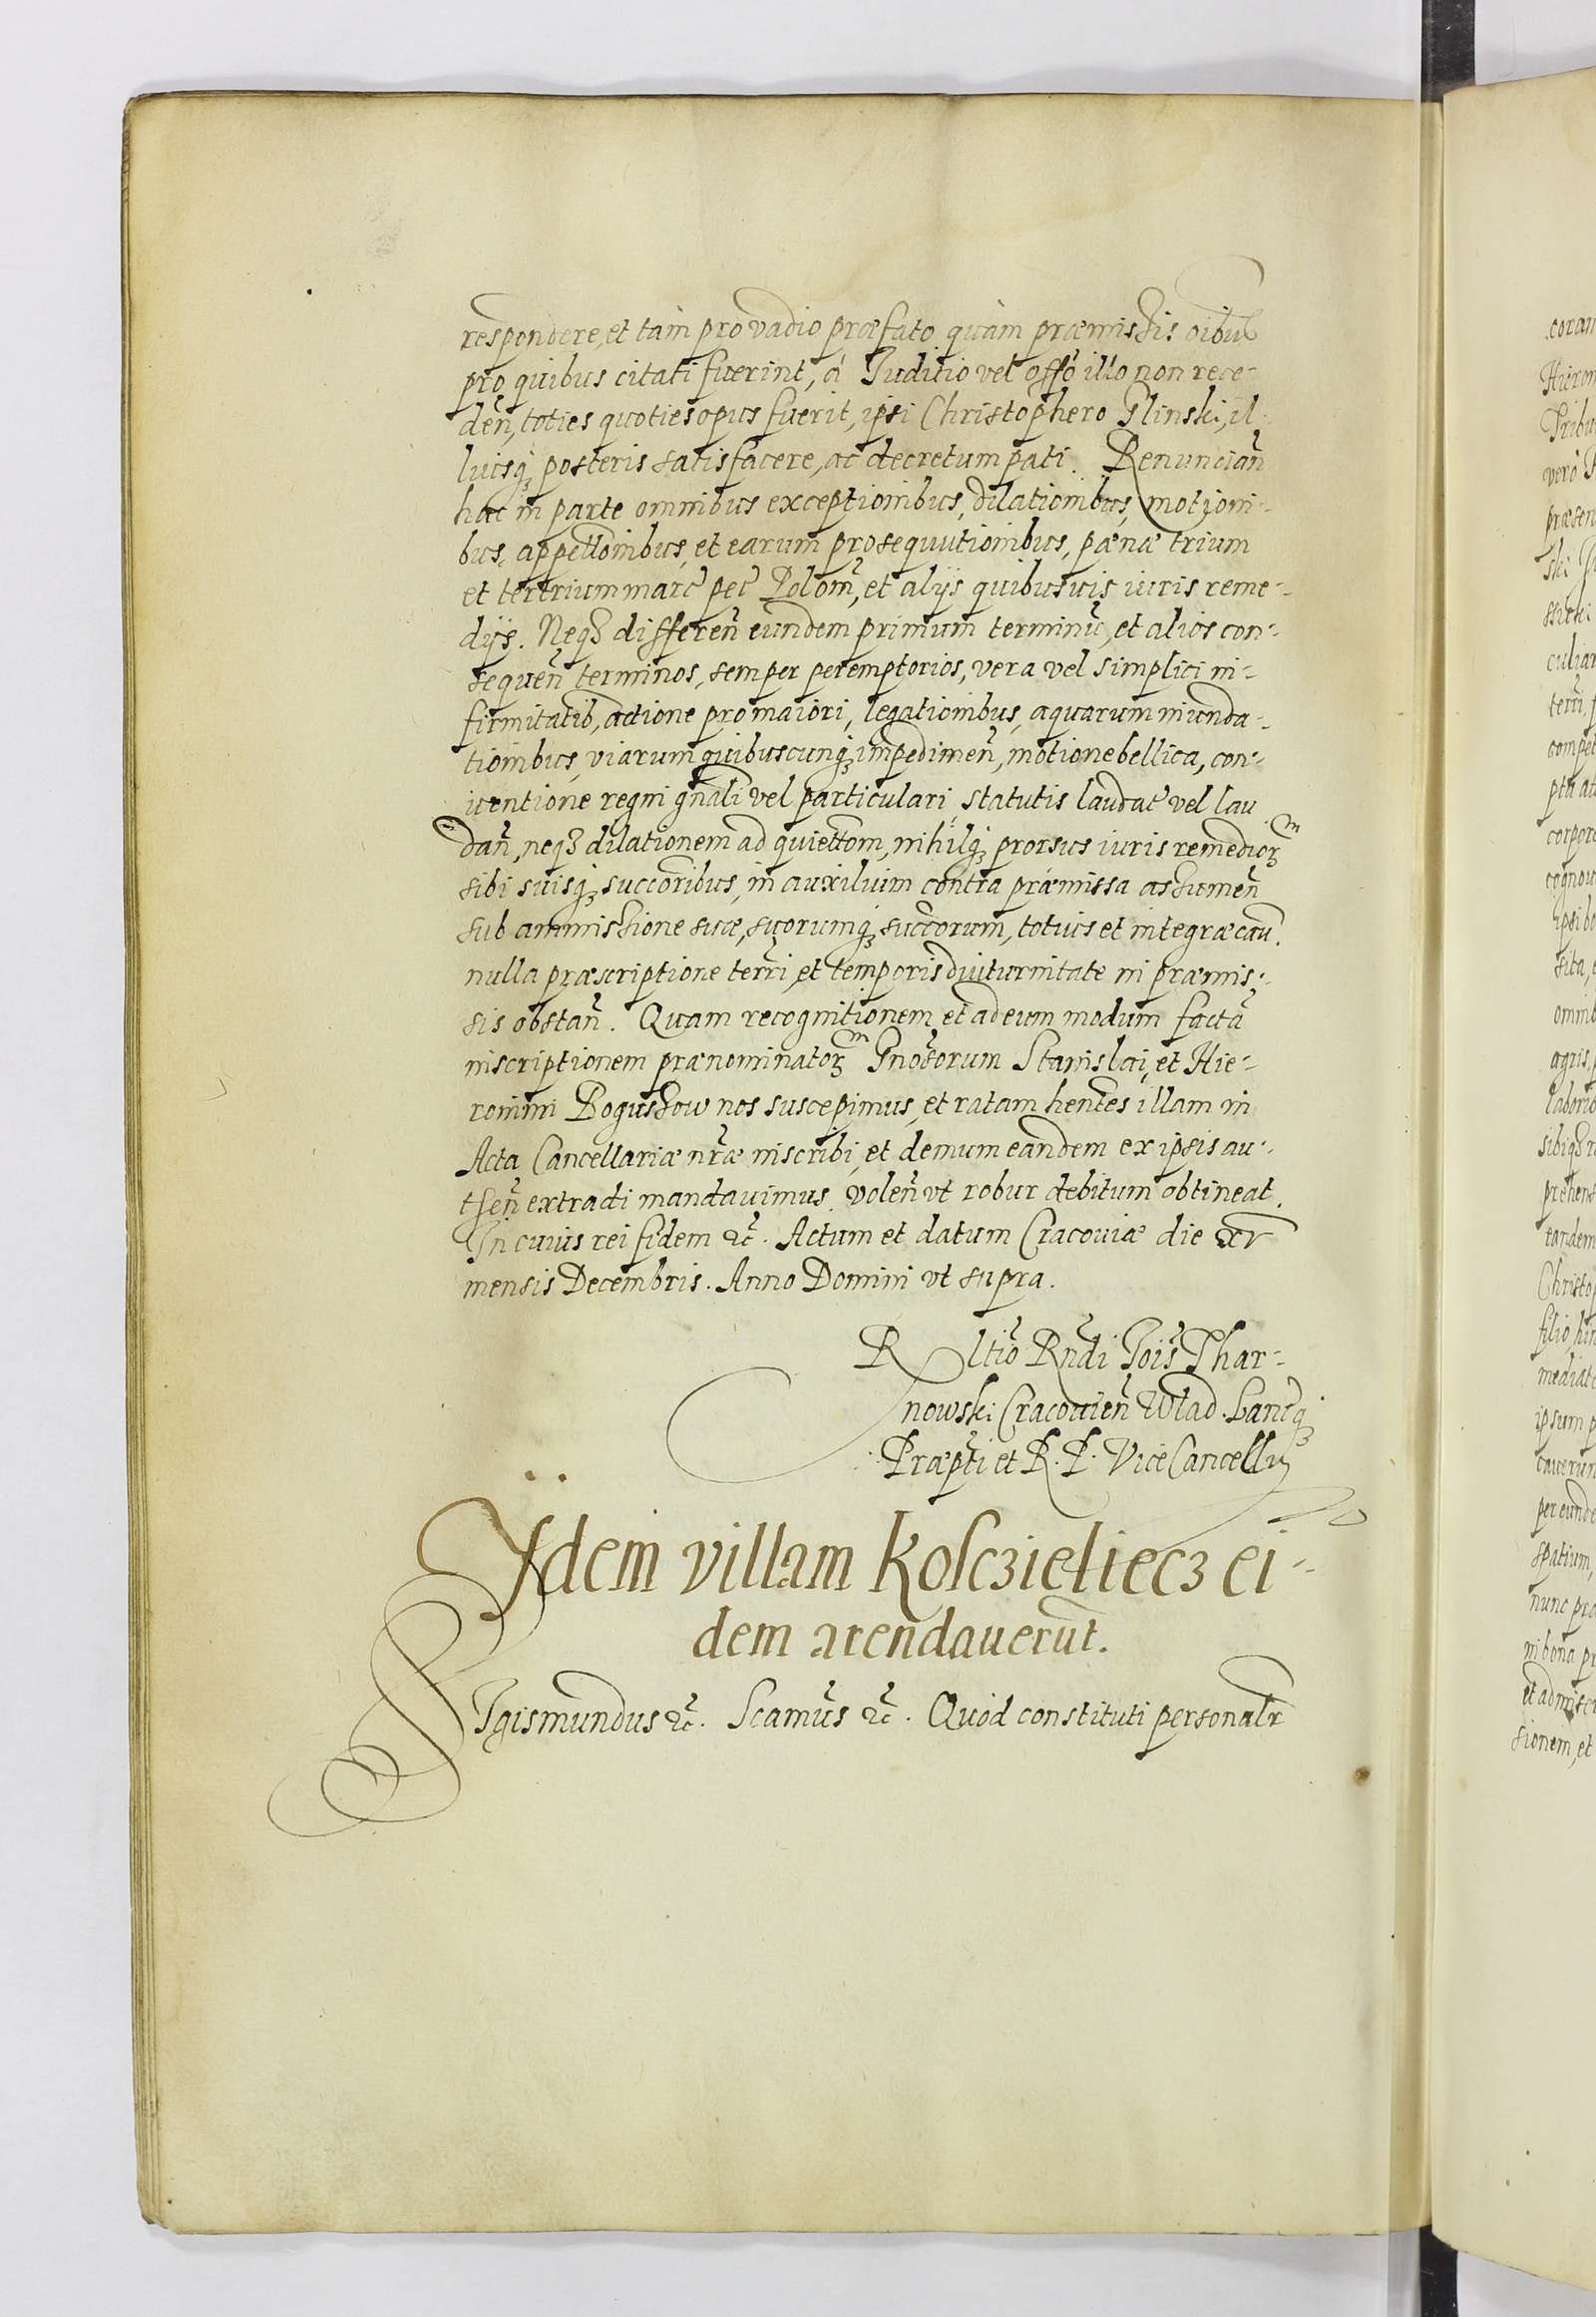 respondere, et tàm pro vadio præfato quàm præmissis oĩbus
pro quibus citati fuerint, à Juditio vel offõ illo non rece-
deñ, toties quoties opus fuerit, ipsi Christophero Glinski, il-
liusq́ꝫ posteris satisfacere, ac decretum pati. Renuncian̄
hac in parte omnibus exceptionibus, dilationibus, motioni-
bus, appellõnibus, et earum prosequutionibus, pænæ trium
et ter trium marc̃ pec̃ Polom̃, et alijs quibusuis iuris reme-
dijs. Neqꝫ differeñ eundem primum terminũ, et alios con-
sequeñ terminos, semper peremptorios, vera vel simplici in-
firmitatib, actione pro maiori, legationibus, aquarum inunda-
tionibus, viarum quibuscunqꝫ impedimeñ, motione bellica, con-
uentione regni gñali vel particulari, statutis laudat̃ vel lau
dañ, neqꝫ dilationem ad quietõm, nihilqꝫ prorsus iuris remedior̃ꝫ
sibi suisqꝫ succõribus, in auxilium contra præmissa assumeñ
sub ammissione suæ, suorumqꝫ succõrum, totius et integræ cau.
nulla præscriptione terr̃i et temporis diuturnitate in præmis-
sis obstañ. Quam recognitionem et ad eum modum factã
inscriptionem prænominator̃ꝫ Gnõsorum Stanislai, et Hie-
ronimi Bogussow nos suscepimus, et ratam hentes illam in
Acta Cancellariæ nr̃æ inscribi, et demum eandem ex ipsis au-
tseñ extradi mandauimus. voleñ vt robur debitum obtineat.
In cuius rei fidem ꝛc̃. Actum et datum Cracouiæ die xv
mensis Decembris. Anno Domini vt supra.
R ltiõ Rñdi Jois̃ Thar-
nowski Cracouieñ Wlad. Lancq̃ꝫ
Præpti et R. P. Vice Cancellrij
Ijdem villam Kosczieliecz ei-
dem arendauerũt.
SIgismundus ꝛc̃. Scamũs ꝛc̃. Quòd constituti personalr̃
coram
Hieron
Tribu
vero
præsen
ski
culiar
terr̃i,
compet
corpor
cognou
ipsi bo
sita,
omnib
agris,
laborio
sibiqꝫ
prehens
tandem
Christop
filio,
mediat
ipsum p
cauerun
per eunde
spatium,
nunc pro
ni bona pr
et admis
sionem, et